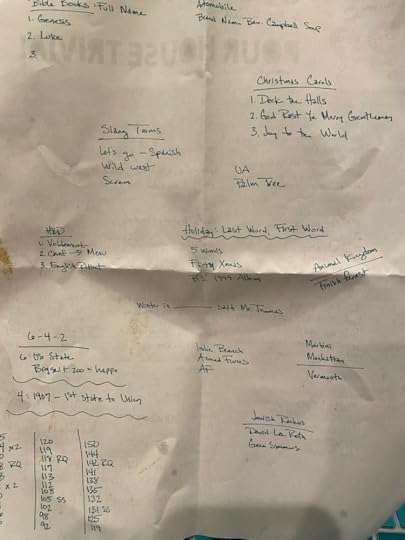 Bible Books: Full Name
1. Genesis
2. Luke
3.
Automobile
Brand Name Bev. Campbell Soup
POUR HOUSE TRIVIA
Christmas Carols
1. Deck the Halls
2. God Rest Ye Merry Gentlemen
3. Joy to the World
Slang Terms
Let's go - Spanish
Wild west
Scram
UA
Palm Tree
1. Voldemort
2. Chef - 5 Menu
3. English Patient
Holiday: Last Word, First Word
5 words
Xmas
B.S. 1999 Album
Animal Kingdom
Finish Forrest
Winter is ____ said Mr. Thomas
6-4-2
6: US State
Biggest + 200 = happo
4: 1907 - 1st State to Using
Indie Branch
Armed Forces
AF
Martini
Manhattan
Vermouth
Jewish Rockers
David Lee Roth
Gene Simmons
x2
RQ
x2
120
119
118 RQ
117
113
112
108
105 SS
102
98
92
150
144
142 RQ
141
138
135
132
131 SS
125
119